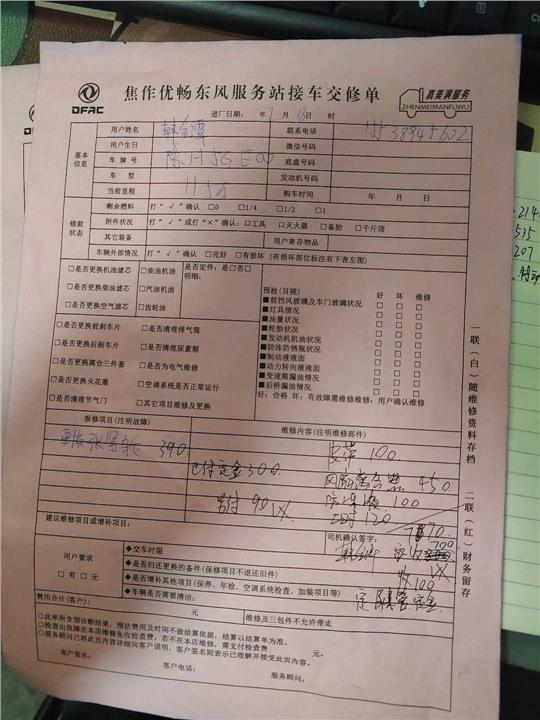 DFAC
焦作优畅东风服务站接车交修单
真美满服务
ZHENMEIMANFUWU
进厂日期: 年 月 日 时
基本信息
用户姓名 联系电话
用户生日 微信号码
车牌号 底盘号码
车型 发动机号码
当前里程 11.5万 购车时间 年 月 日
修前状态
剩余燃料 打“√”确认 □0 □1/4 □1/2 □1
附件状况 打“√”或打“×”确认:□工具 □灭火器 □备胎 □千斤顶
其它装备 用户寄存物品
车辆外部情况 打“√”确认 □完好 □有损坏(有损坏部位标注有下表左图)
□是否更换机油滤芯 □柴油机油 是否定件:是□否□
□是否更换柴油滤芯 □汽油机油 明细:
□是否更换空气滤芯 □齿轮油
□是否更换前刹车片 □是否清理排气筒
□是否更换后刹车片 □是否清理尿素箱
□是否更换离合三件套 □是否为电气维修
□是否更换火花塞 □空调系统是否正常运行
□是否清理节气门 □其它项目维修及更换
预检(目视) 好 坏 维修
■前挡风玻璃及车门玻璃状况 □ □ □
■灯具情况 □ □ □
■油量状况 □ □ □
■轮胎状况 □ □ □
■发动机机油状况 □ □ □
■防冻防锈瓶状况 □ □ □
■制动液液面 □ □ □
■动力转向液液面 □ □ □
■变速箱漏油情况 □ □ □
■后桥漏油情况 □ □ □
好:合格 坏:有故障需维修维修:用户确认维修
报修项目(注明故障) 维修内容(注明维修部件)
更换张紧轮 390 皮带 100
已付定金300 450
另付 90 100
工时 120
建议维修项目或增补项目: 司机确认签字:
用户要求
□有 □无
◆交车时限
◆是否归还更换的备件(保修项目不退还旧件)
◆是否增补其他项目(保养、年检、空调系统检查、加装项目等)
◆车辆是否需要清洁:
收100
费用合计(客户): 元 维修及三包件不允许带走
○此单所含预诊断结果,预估费用及时间不做结算依据,结算以结算单为准。
○检查出故障在本店维修免收检查费,若不在本店维修,需支付检查费 元。
○服务顾问已将此页内容详细向客户说明,客户签名则表示已理解并接受此页内容。
客户签名: 客户电话: 服务顾问:
一联(白)随维修资料存档
二联(红)财务留存